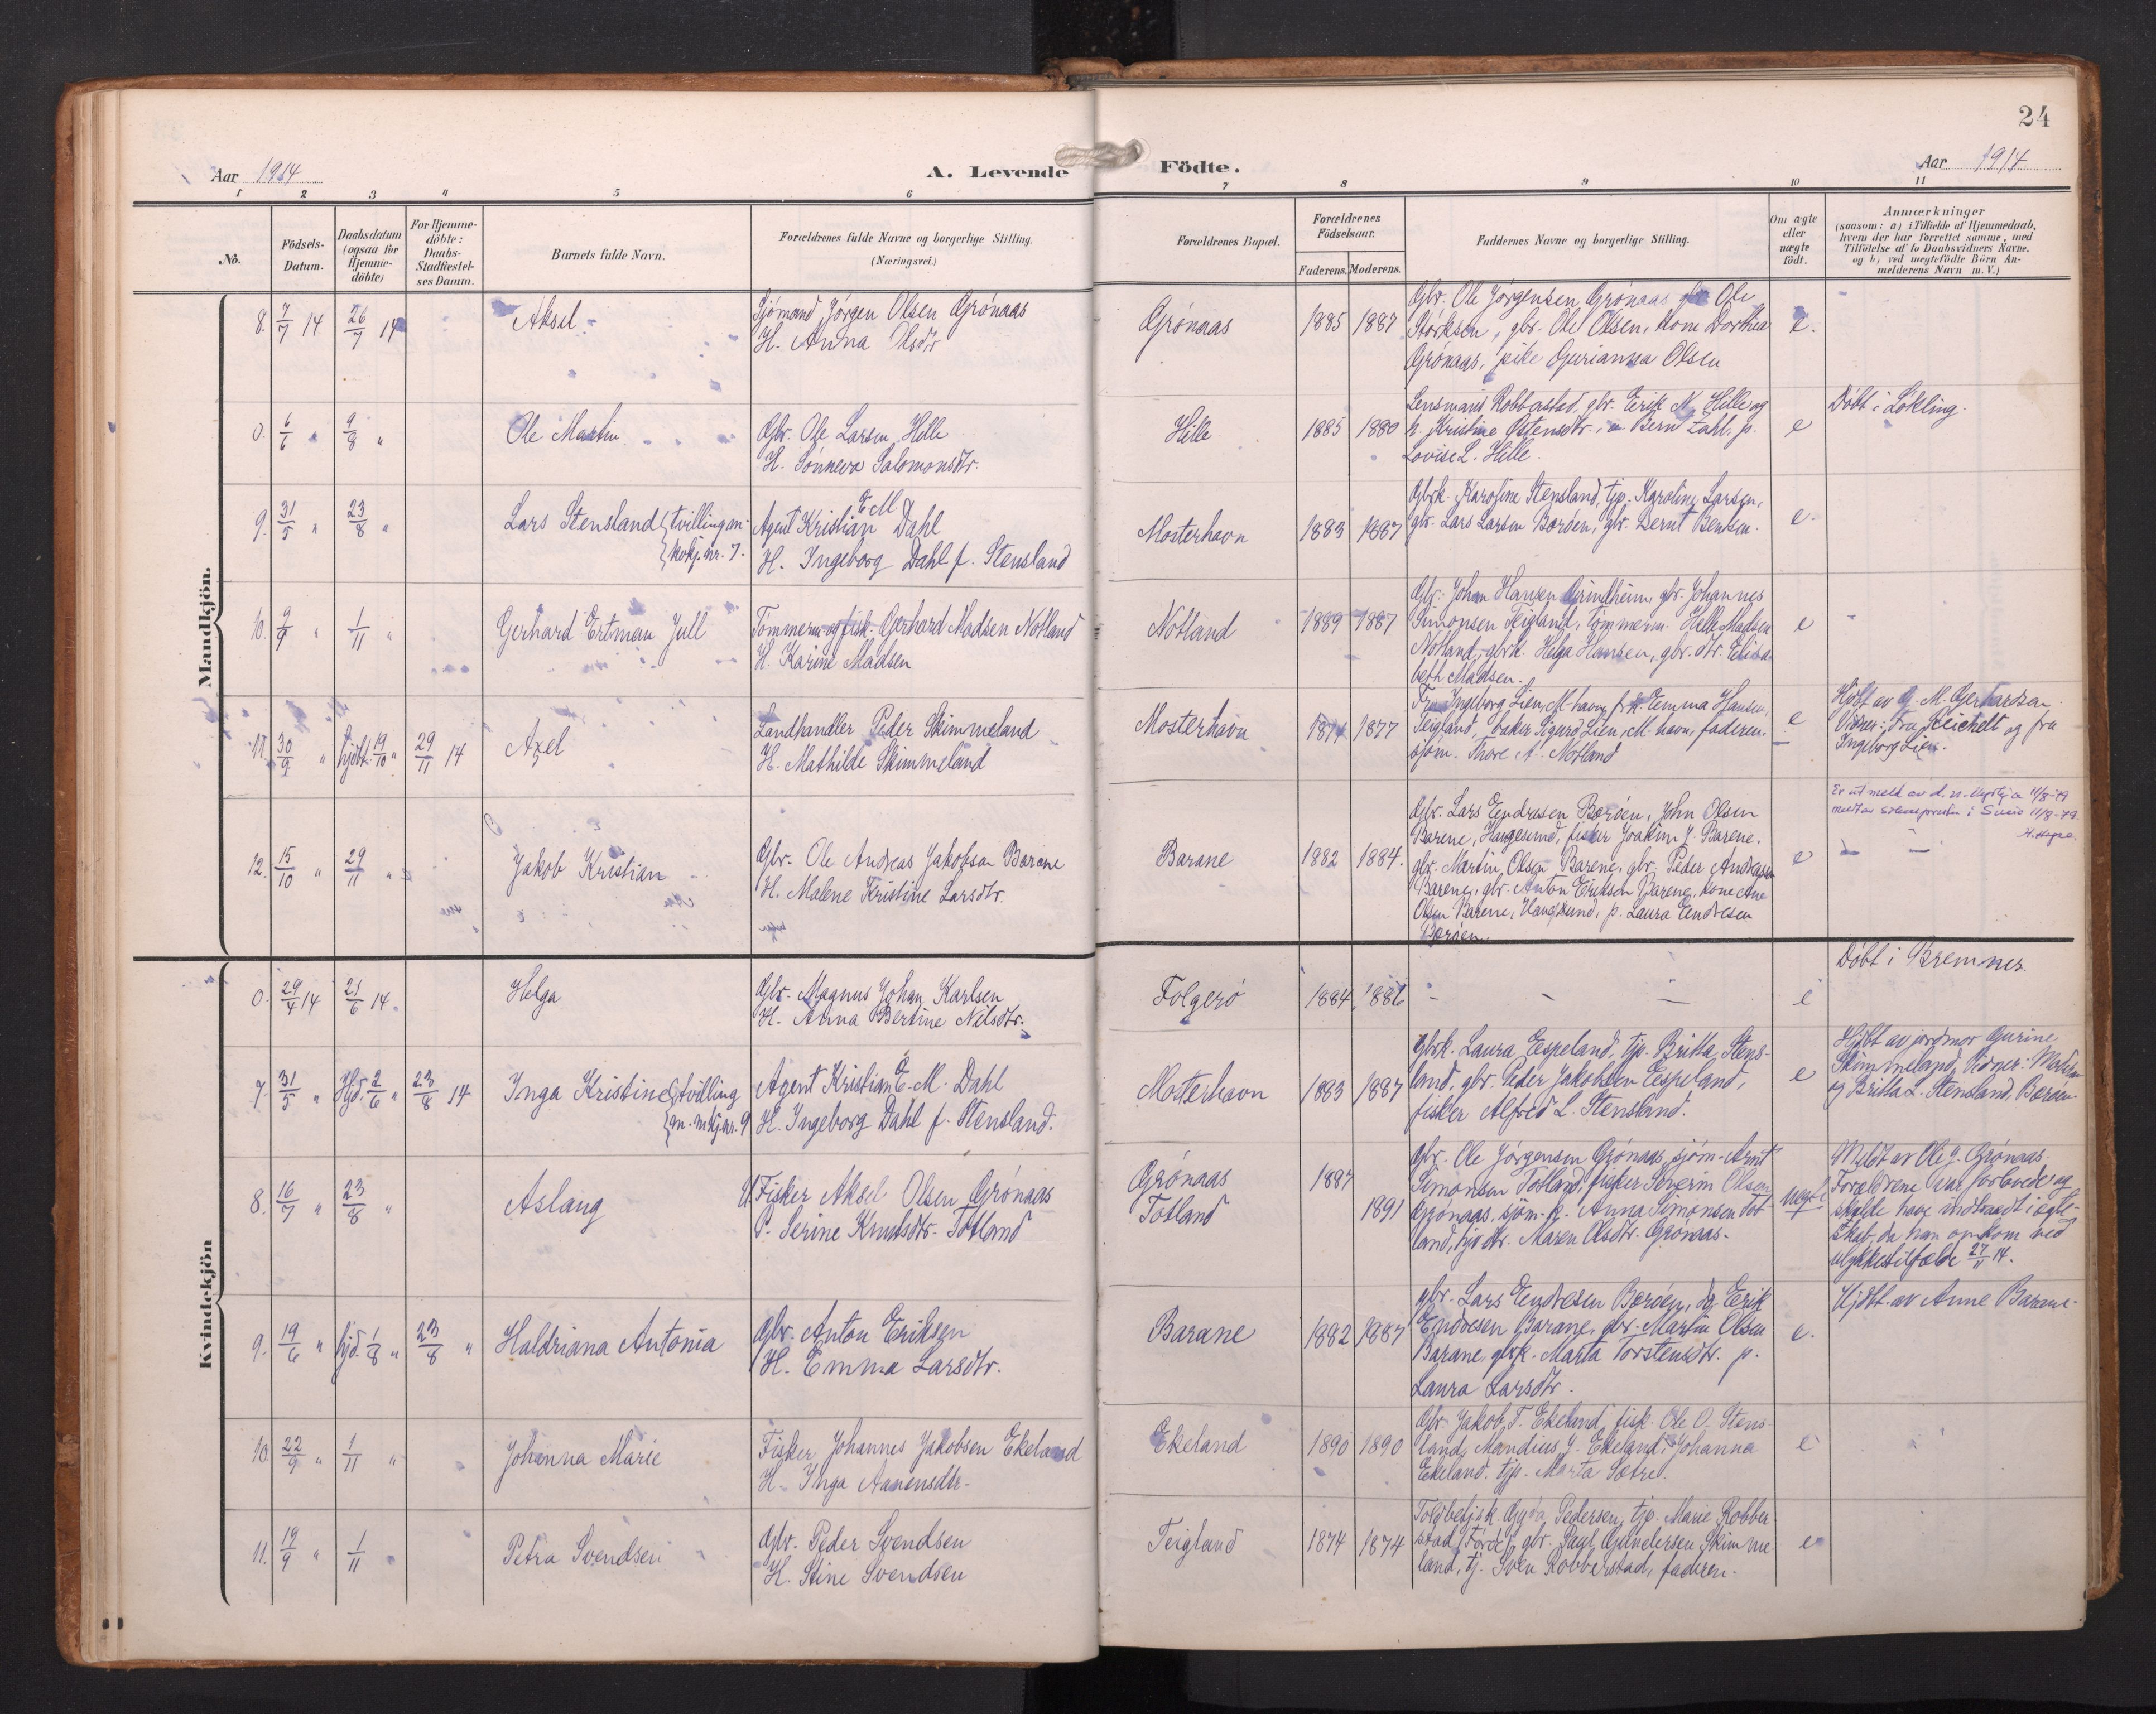 24
Aar 1914
A. Levende Fødte.
Aar 1914
1 2 3 4 5 6 7 8 9 10 11
No.
Födsels-Datum.
Daabsdatum (ogsaa for Hjemme-döbte)
For Hjemme-döbte: Daabs-Stadfæstel-ses Datum.
Barnets fulde Navn.
Forældrenes fulde Navne og borgerlige Stilling. (Næringsvei.)
Forældrenes Bopæl.
Forældrenes Födselsaar.
Faderens. Moderens.
Faddernes Navne og borgerlige Stilling.
Om ægte eller uægte födt.
Anmærkninger
(saasom: a) i Tilfælde af Hjemmedaab,
hvem der har forrettet samme, med
Tilföielse af to Daabsvidners Navne.
og b) ved uægtefödte Börn An-
melderens Navn m. V.)
Mandkjön.
8. 7/7 14 26/7 14 Aksel
Sjömand Jörgen Olsen Grönaas
H. Anna Olsdtr
Grönaas 1885 1887
Gbr. Ole Jörgensen Grönaas, gbr. Ole
Störksen, gbr. Ole Olsen, kone Dorthea
Grönaas, pike Gurianna Olsen
e.
0. 6/6 " 9/8 " Ole Martin
Gbr. Ole Larsen Hille
H. Sönneva Salomonsdtr.
Hille 1885 1880
Lensmand Robberstad, gbr. Erik N. Hille og
h. Kristine Östensdtr. Bernt Zahl, p.
Lovise L. Hille.
e
Döbt i Lökling.
9. 31/5 " 23/8 " Lars Stensland {tvilling m.
{kvkj. nr. 7.
Agent Kristian E M Dahl
H. Ingeborg Dahl f. Stensland
Mosterhavn 1883 1887
Gbrk. Karoline Stensland, tjp. Karoline Larsen,
gbr. Lars Larsen Boröen, gbr. Bernt Bentsen.
e.
10. 9/9 " 1/11 " Gerhard Ertman Jull
Tömmerm. og fisk. Gerhard Madsen Notland
H. Karine Madsen
Notland 1889 1887
Gbr. Johan Hansen Grindheim, gbr. Johannes
Simonsen Teigland, tömmerm. Helle Madsen
Notland, gbrk. Helga Hansen, gbr. dtr. Elisa-
beth Madsen.
e
11. 30/9 " hjdbt. 19/10 " 29/11 14 Axel
Landhandler Peder Skimmeland
H. Mathilde Skimmeland
Mosterhavn 1874 1877
Fru Ingeborg Lien, M.havn, frk. Emma Hansen,
Teigland, baker Sigard Lien, M-havn, faderen,
sjöm. Thore A. Notland
e
Hjdbt av G. M. Gerhardsen.
Vidner: fru Reichelt og fru
Ingeborg Lien.
12. 15/10 " 29/11 " Jakob Kristian
Gbr. Ole Andreas Jakobsen Barane
H. Malene Kristine Larsdtr.
Barane 1882 1884.
Gbr. Lars Eyndresen Boröen, John Olsen
Barene, Haugesund, fisker Joakim J. Barene,
gbr. Martin Olsen Barene, gbr. Peder Andreasen
Barene, gbr. Anton Eriksen Barene, kone Ane
Olsen Barene, Haugesund, p. Laura Eendresen
Boröen.
e
Er utmeldt av d. n. 11/8-79
i 11/8-79.
Kvindekjön
0. 29/4 14 21/6 14. Helga
Gbr. Magnus Johan Karlsen
H. Anna Bertine Nilsdtr.
Folgerö 1884 1886
– – –
e
Döbt i Bremnes.
7. 31/5 " Hjd. 2/6 " 23/8 14 Inga Kristine {tvilling
{m. mkj. nr. 9
Agent Kristian E. M. Dahl
H. Ingeborg Dahl f. Stensland.
Mosterhavn 1883 1887
Gbrk. Laura Eespeland, tjp. Britta Stens-
land, gbr. Peder Jakobsen Eespeland,
fisker Alfred L. Stensland.
e
Hjdbt av jordmor Gurine
Skimmeland. Vidner: Moderen
og Britta L. Stensland, Boröen.
8. 16/7 " 23/8 " Aslaug
U. Fisker Aksel Olsen Grönaas
P. Serine Knutsdtr. Totland
Grönaas 1887
Totland 1891
Gbr. Ole Jörgensen Grönaas, sjöm. Arnt
Simonsen Totland, fisker Severin Olsen
Grönaas, sjöm. h. Anna Simonsen Tot-
land, tjp. Maren Olsdtr. Grönaas.
uegte
Meldt av Ole J. Grönaas.
Foreldrene var forlovede og
skulde have indtraadt i egte-
skab, da han omkom ved
ulykkestilfælde 27/11 14.
9. 19/6 " hjd. 1/8 " 23/8 " Haldriana Antonia
Gbr. Anton Eriksen
H. Emma Larsdtr.
Barane 1882 1887
gbr. Lars Eendresen Boröen, do. Erik
Endresen Barane, gbr. Martin Olsen
Barane, gbrk. Marta Torstensdtr. p.
Laura Larsdtr.
e.
Hjdbt. av Anne Barane.
10. 22/9 " 1/11 " Johanna Marie
Fisker Johannes Jakobsen Ekeland
H. Inga Aanensdtr.
Ekeland 1890 1890
Gbr. Jakob T. Ekeland, fisk. Ole O. Stens-
land, Mandius J. Ekeland, Johanna
Ekeland. tjp. Marta Sætre.
e
11. 19/9 " 1/11 " Petra Svendsen
Gbr. Peder Svendsen
H. Stine Svendsen
Teigland 1874 1874
Toldbetj.k. Gyda Pedersen, tjp. Marie Robber-
stad, Förde, gbr. Paul Gundersen Skimme-
land, tj. Sven Robberstad, faderen.
e